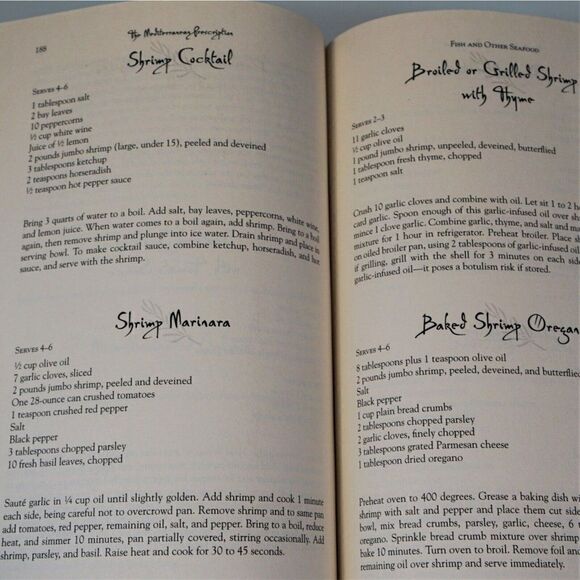 188
The Mediterranean Prescription
Shrimp Cocktail
SERVES 4–6
1 tablespoon salt
2 bay leaves
10 peppercorns
½ cup white wine
Juice of ½ lemon
2 pounds jumbo shrimp (large, under 15), peeled and deveined
3 tablespoons ketchup
2 teaspoons horseradish
½ teaspoon hot pepper sauce
Bring 3 quarts of water to a boil. Add salt, bay leaves, peppercorns, white wine,
and lemon juice. When water comes to a boil again, add shrimp. Bring to a boil
again, then remove shrimp and plunge into ice water. Drain shrimp and place in
serving bowl. To make cocktail sauce, combine ketchup, horseradish, and hot
sauce, and serve with the shrimp.
Shrimp Marinara
SERVES 4–6
½ cup olive oil
7 garlic cloves, sliced
2 pounds jumbo shrimp, peeled and deveined
One 28-ounce can crushed tomatoes
1 teaspoon crushed red pepper
Salt
Black pepper
3 tablespoons chopped parsley
10 fresh basil leaves, chopped
Sauté garlic in ¼ cup oil until slightly golden. Add shrimp and cook 1 minute
each side, being careful not to overcrowd pan. Remove shrimp and to same pan
add tomatoes, red pepper, remaining oil, salt, and pepper. Bring to a boil, reduce
heat, and simmer 10 minutes, pan partially covered, stirring occasionally. Add
shrimp, parsley, and basil. Raise heat and cook for 30 to 45 seconds.
FISH AND OTHER SEAFOOD
Broiled or Grilled Shrimp
with Thyme
SERVES 2–3
11 garlic cloves
½ cup olive oil
1 pound jumbo shrimp, unpeeled, deveined, butterflied
1 tablespoon fresh thyme, chopped
1 teaspoon salt
Crush 10 garlic cloves and combine with oil. Let sit 1 to 2 h
card garlic. Spoon enough of this garlic-infused oil over sh
mince 1 clove garlic. Combine garlic, thyme, and salt and ma
mixture for 1 hour in refrigerator. Preheat broiler. Place s
on oiled broiler pan, using 2 tablespoons of garlic-infused oil
if grilling, grill with the shell for 3 minutes on each side
garlic-infused oil—it poses a botulism risk if stored.
Baked Shrimp Oregan
SERVES 4–6
8 tablespoons plus 1 teaspoon olive oil
2 pounds jumbo shrimp, peeled, deveined, and butterflied
Salt
Black pepper
1 cup plain bread crumbs
2 tablespoons chopped parsley
2 garlic cloves, finely chopped
3 tablespoons grated Parmesan cheese
1 tablespoon dried oregano
Preheat oven to 400 degrees. Grease a baking dish wi
shrimp with salt and pepper and place them cut side
bowl, mix bread crumbs, parsley, garlic, cheese, 6
oregano. Sprinkle bread crumb mixture over shrimp
bake 10 minutes. Turn oven to broil. Remove foil and
remaining oil over shrimp and serve immediately.